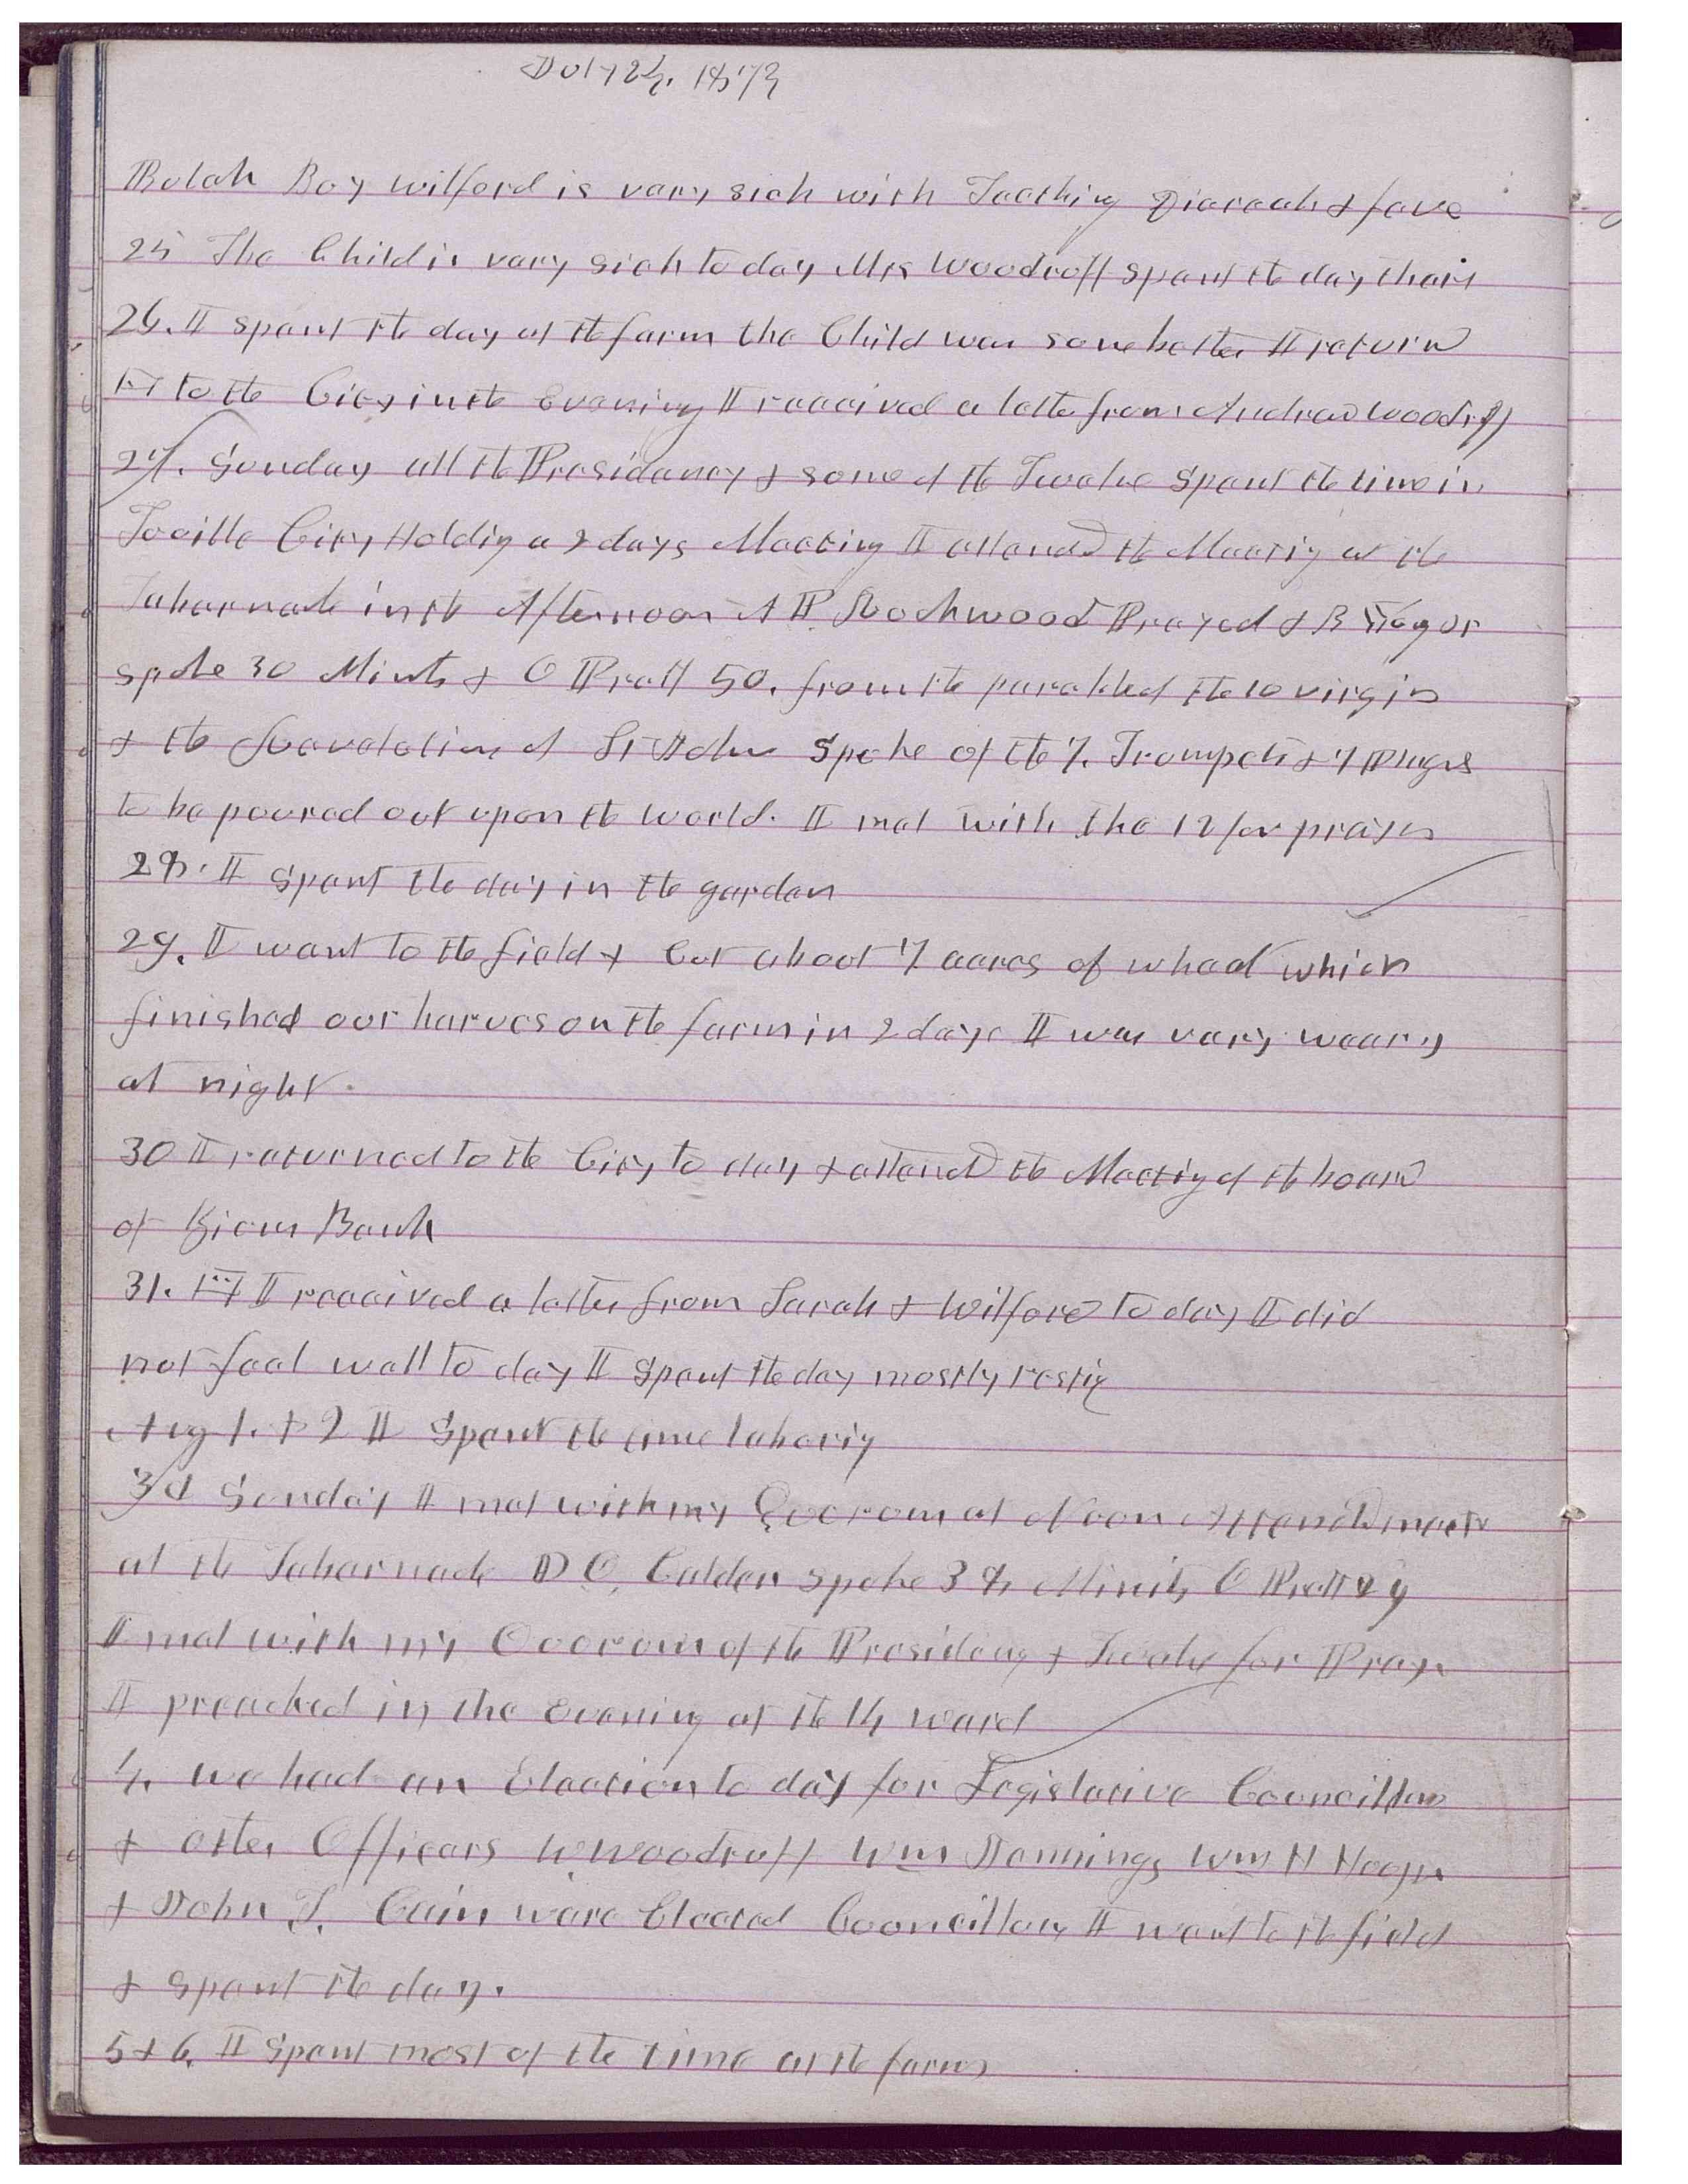 July 24, 1873
Bulah Boy wilford is vary sick with Teething Diareah & feve
25 The Child is vary sick to day Mrs Woodruff spent the day their
26. I spent the day at the farm the Child was some better I return
to the City in the Evening I received a letter from Andrew Woodruff
27. Sunday all the Presidency & some of the Twelve spent the time in
Tooille City Holding a 2 days Meeting I attend the Meeting at the
Tabernacle in the Afternoon A P Rockwood Prayed & B Young jr
spoke 30 Minuts & O Pratt 50. from the parable of the 10 virgins
& the Revelations of St John Spoke of the 7. Trumpets & 7 Plagues
to be poured out upon the world. I met with the 12 for prayers
28. I spent the day in the garden
29. I went to the field & Cut about 7 acres of wheat which
finished our harves on the farm in 2 days I was vary weary
at night.
30 I returned to the City to day & attend the Meeting of the board
of Zions Bank
31. I received a letter from Sarah & Wilford to day I did
not feel well to day I spent the day mostly resting
Aug 1. & 2 I spent the time laboring
3d Sunday I met with my Quorum at Noon Attend meeting
at the Tabernacle D O. Calder spoke 38 Minuts O Pratt 29
I met with my Quorum of the Presidency & Twelve for Prayer
I preached in the evening at the 14 ward
4. we had an Election to day for Legislative Councillors
& other Officers W Woodruff Wm Jennings Wm H Hooper
& John T. Cain were Elected Councillors I went to the field
& spent the day.
5 & 6. I spent most of the time at the farm